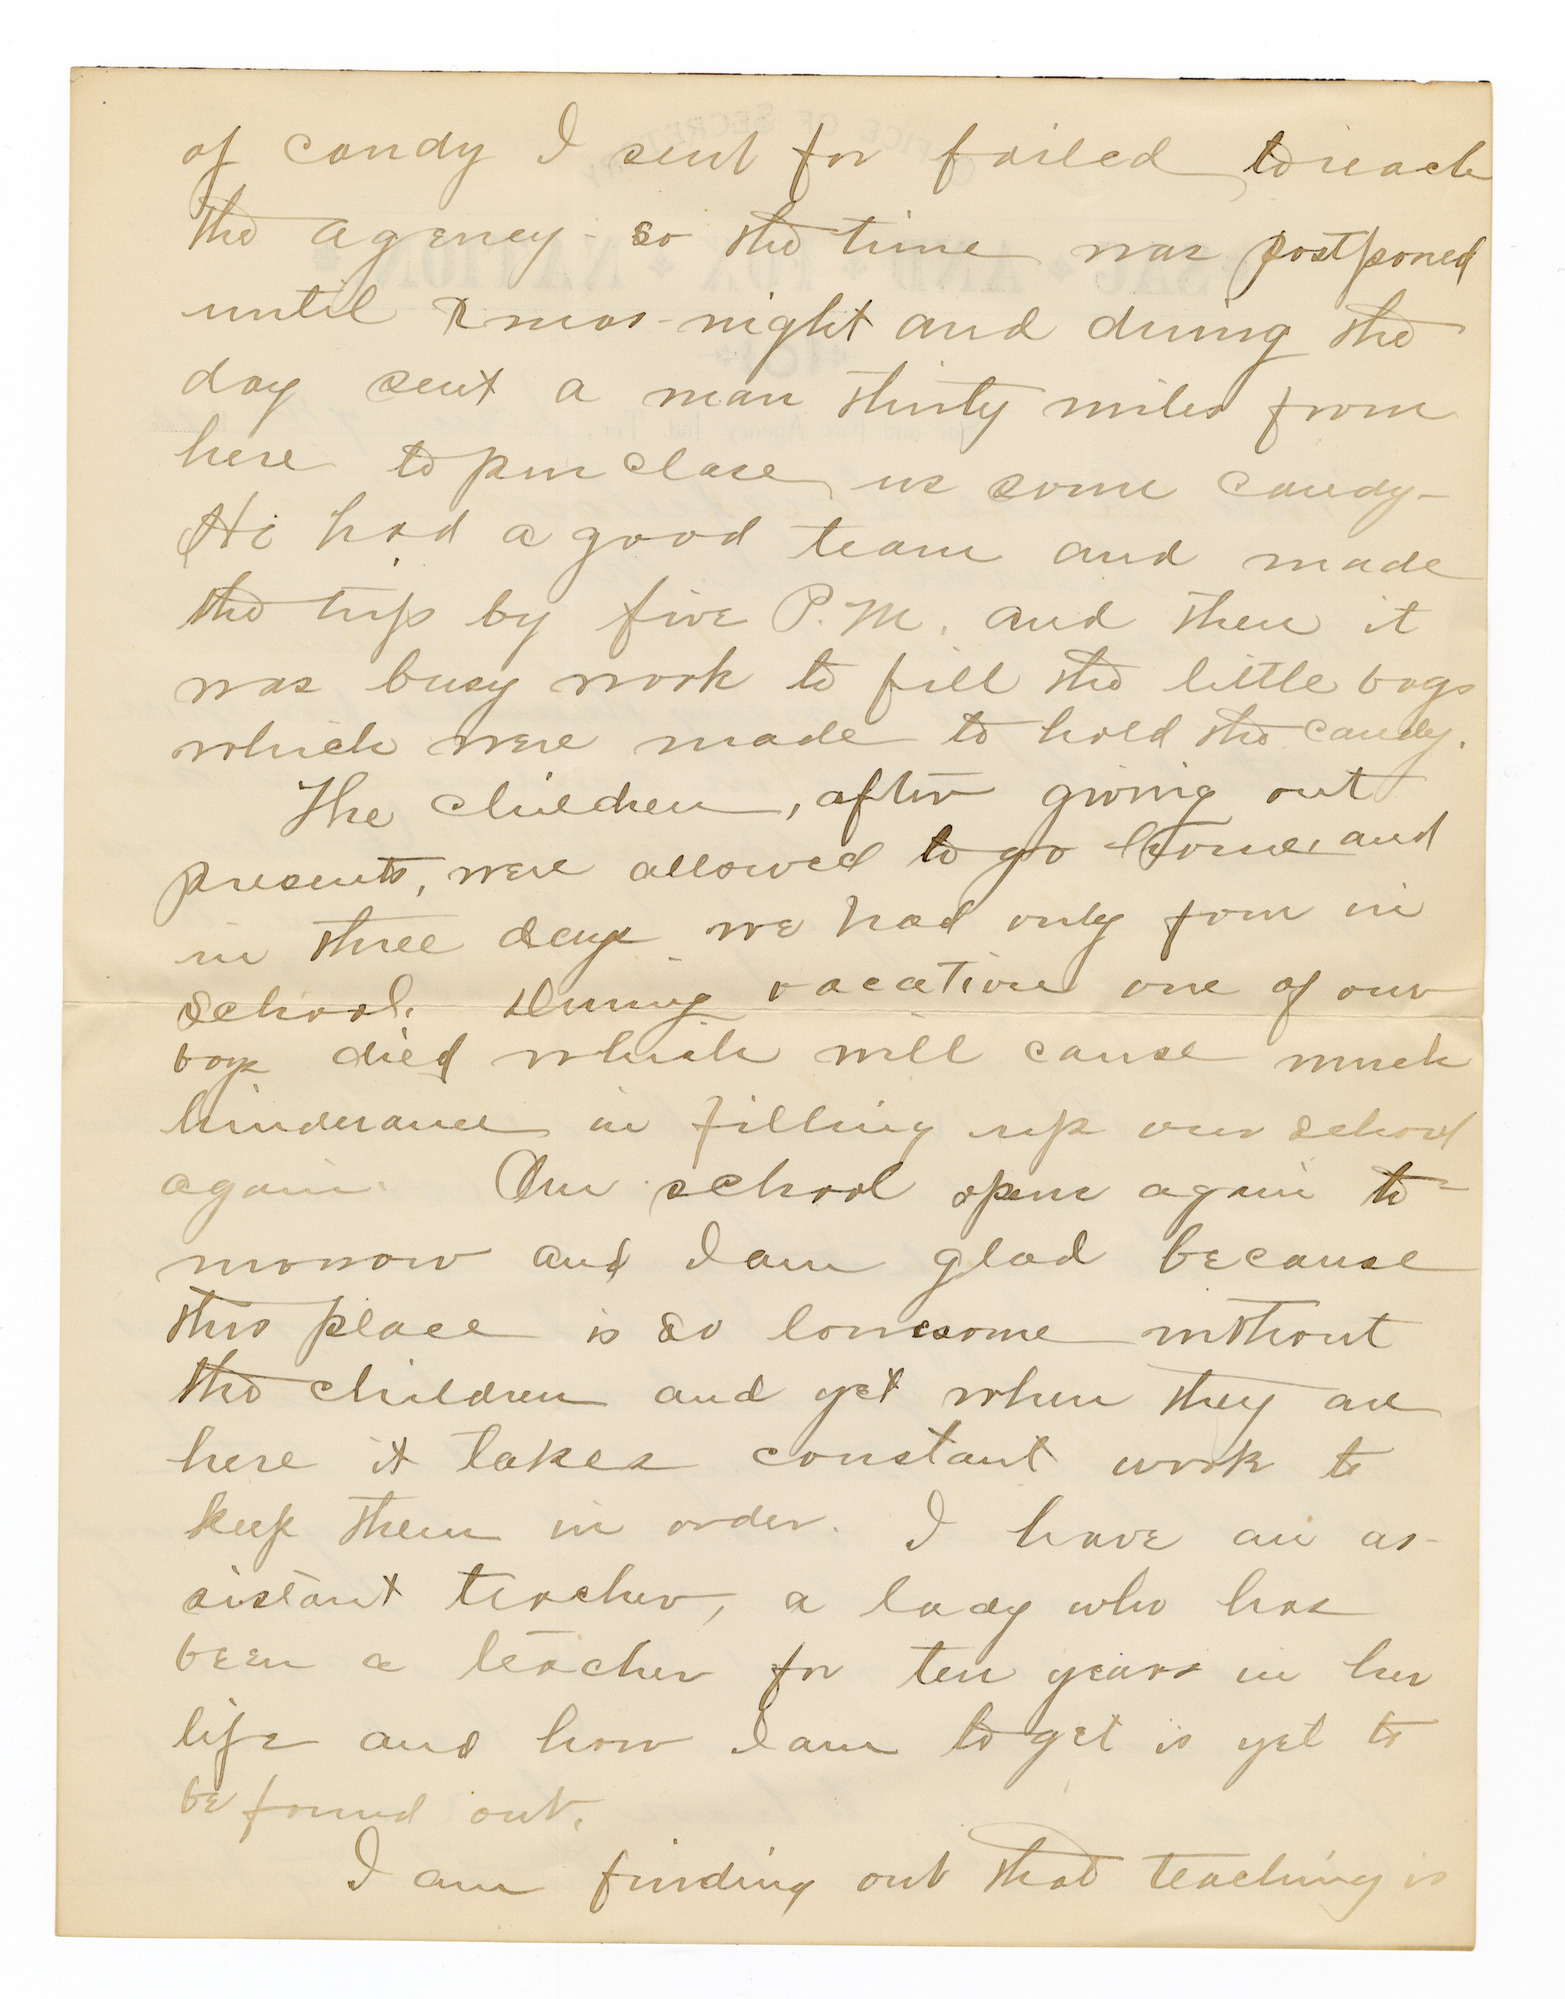 of candy I sent for failed to reach
the agency - so the time was postponed
until Xmas-night and during the
day sent a man thirty miles from
here to purchase us some candy -
He had a good team and made
the trip by five P.M. and then it
was busy work to fill the little bags
which were made to hold the candy.
The children, after giving out
presents, were allowed to go home and
in three days we had only four in
school. During vacation one of our
boys died which will cause much
hinderance in filling up our school
again. Our school opens again to-
morrow and I am glad because
this place is so lonesome without
the children and yet when they are
here it takes constant work to
keep them in order. I have an as-
sistant teacher, a lady who has
been a teacher for ten years in her
life and how I am to get is yet to
be found out.
I am finding out that teaching is